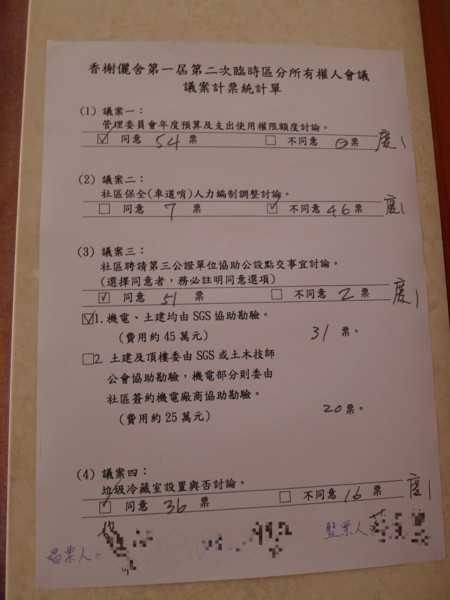 香榭儷舍第一屆第二次臨時區分所有權人會議
議案計票統計單
(1) 議案一：
管理委員會年度預算及支出使用權限額度討論。
☑ 同意 54 票 □ 不同意 0 票 廢1
(2) 議案二：
社區保全(車道哨)人力編制調整討論。
□ 同意 7 票 ☑ 不同意 46 票 廢1
(3) 議案三：
社區聘請第三公證單位協助公設點交事宜討論。
(選擇同意者，務必註明同意選項)
☑ 同意 51 票 □ 不同意 2 票 廢1
☑1. 機電、土建均由 SGS 協助勘驗。
(費用約 45 萬元) 31 票。
□2. 土建及頂樓委由 SGS 或土木技師
公會協助勘驗，機電部分則委由
社區簽約機電廠商協助勘驗。
(費用約 25 萬元) 20 票。
(4) 議案四：
垃圾冷藏室設置與否討論。
☑ 同意 36 票 □ 不同意 16 票 廢1
唱票人： 監票人